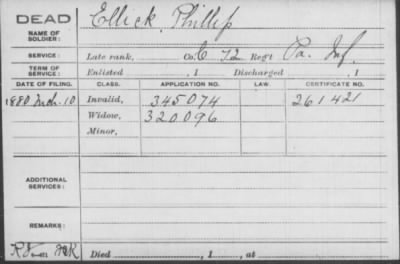 DEAD
NAME OF SOLDIER:
Ellick, Phillip
SERVICE: Late rank, Co. C 72 Reg't Pa. Inf.
TERM OF SERVICE: Enlisted , 1 Discharged , 1
DATE OF FILING. CLASS. APPLICATION NO. LAW. CERTIFICATE NO.
1880 Mch. 10 Invalid, 345074 261421
Widow, 320096
Minor,
ADDITIONAL SERVICES:
REMARKS:
Died , 1 , at